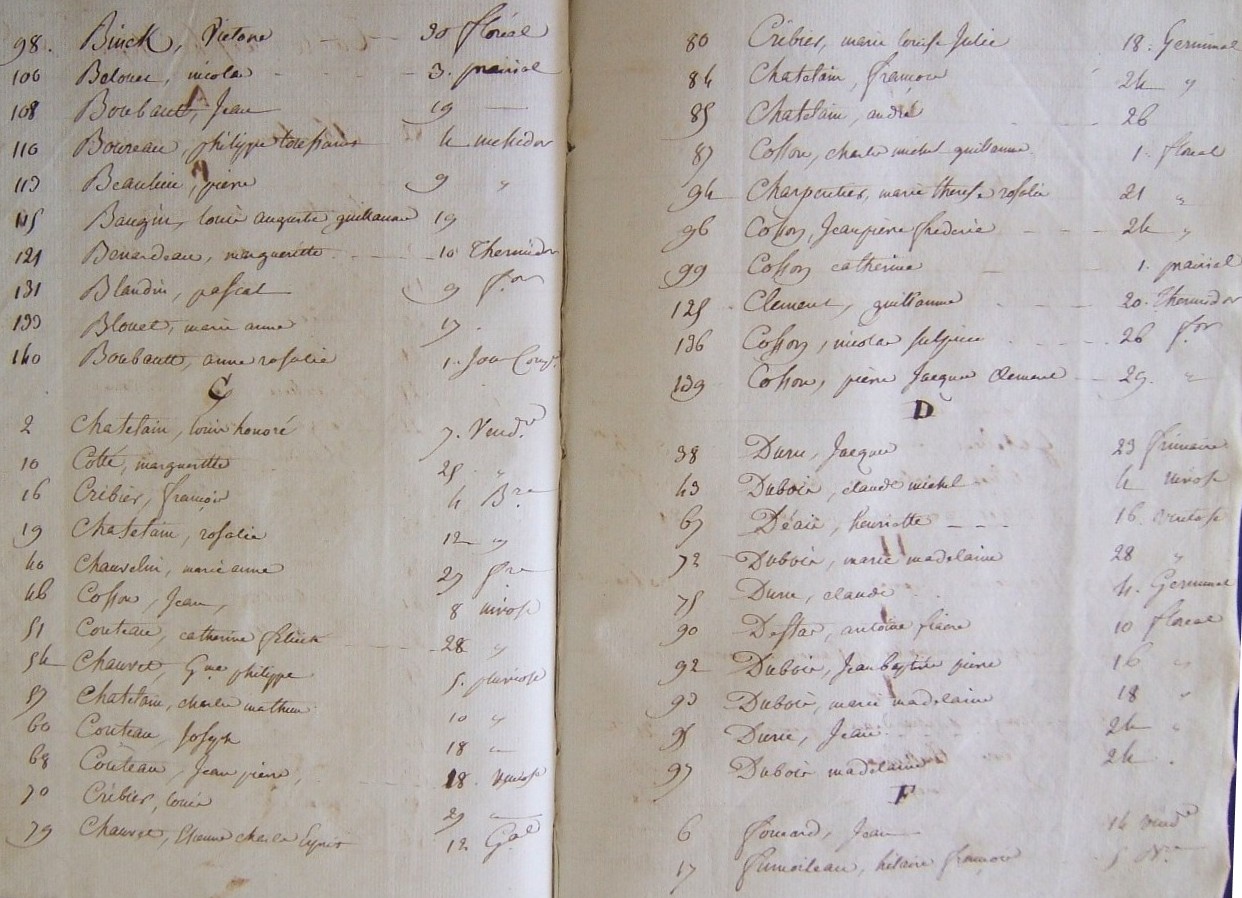 98. Binck, Victore 30 floréal
100 Belouet, nicolas 3. prairial
108 Boubault, Jean 19 —
110 Boureau, philippe 4 messidor
113 Beaulieu, pierre 9 "
115 Baugin, louis auguste guillaume 19
121 Benardeau, margueritte 10 Thermidor
131 Blandin, pascal 9 f.or
133 Blouet, marie anne 17.
140 Boubault, anne rosalie 1. Jour Comp.
C
2 Chatelain, louis honoré 7. Vend.re
10 Cotté, margueritte 25 "
16 Cribier, françois 4 B.re
19 Chatelain, rosalie 12 "
40 Chauvelin, marie anne 27 f.re
46 Cosson, Jean, 8 nivose
51 Couteau, catherine 28 "
54 Chauvet, G.me philippe 5. pluviose
57 Chatelain, charles mathieu 10 "
60 Couteau, Joseph 18 "
68 Couteau, Jean pierre, 18. ventose
70 Cribier, louis 27 —
79 Chauvet, Etienne charles 12 G.al
80 Cribier, marie louise Julie 18. Germinal
84 Chatelain, françois 24 "
85 Chatelain, andré 26
87 Cosson, charles michel guillaume 1. floreal
94 Charpentier, marie therese rosalie 21 "
96 Cosson, Jean pierre frederic 24 "
99 Cosson catherine 1. prairial
125 Clement, guillaume 20. Thermidor
136 Cosson, nicolas sulpice 26 f.or
139 Cosson, pierre Jacques Clement 29. "
D
38 Durie, Jacques 23 frimaire
43 Dubois, claude michel 4 nivose
67 Déais, henriette 16. ventose
72 Dubois, marie madelaine 28 "
75 Durie, claude 4. Germinal
90 antoine fiacre 10 floreal
92 Dubois, Jean baptiste pierre 16 "
93 Dubois, marie madelaine 18 "
95 Durie, Jean 24 "
97 Dubois madelaine 24 .
F
6 foucard, Jean 14 vend.e
17 fumoileau, hilaire françois 5 B.re